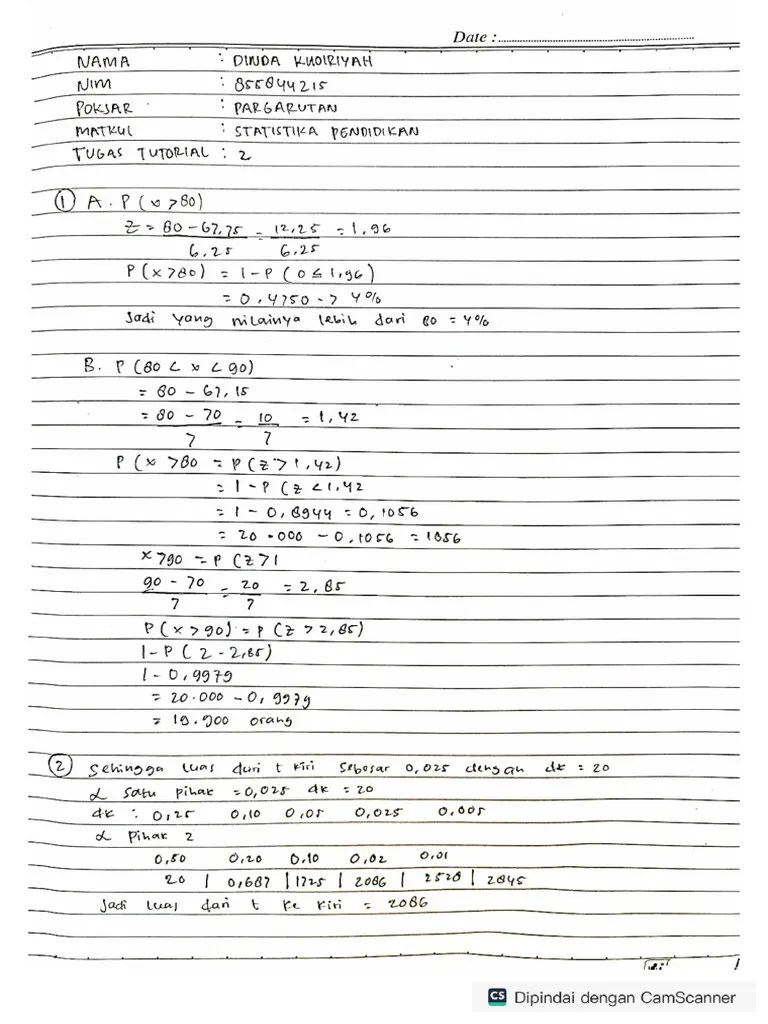 Date :
NAMA : DINDA KHOIRIYAH
NIM : 855844215
POKJAR : PARGARUTAN
MATKUL : STATISTIKA PENDIDIKAN
TUGAS TUTORIAL : 2
① A. P (x > 80)
Z = 80 - 67,75 = 12,25 = 1,96
6,25 6,25
P (x > 80) = 1 - P (0 ≤ 1,96)
= 0,4750 -> 4%
Jadi yang nilainya lebih dari 80 = 4%
B. P (80 < x < 90)
= 80 - 67,15
= 80 - 70 = 10 = 1,42
7 7
P (x > 80 = P (z > 1,42)
= 1 - P (z < 1,42
= 1 - 0,8944 = 0,1056
= 20.000 - 0,1056 = 1056
x > 90 = P (z > 1
90 - 70 = 20 = 2,85
7 7
P (x > 90) = P (z > 2,85)
1 - P (2 - 2,85)
1 - 0,9979
= 20.000 - 0,9979
= 19.900 orang
② Sehingga luas duri t kiri sebosar 0,025 dengan dk = 20
α satu pihak = 0,025 dk = 20
dk : 0,25 0,10 0,05 0,025 0,005
α Pihak 2
0,50 0,20 0.10 0,02 0,01
20 | 0,687 | 1725 | 2086 | 2528 | 2845
Jadi luas dari t ke kiri = 2086
CS Dipindai dengan CamScanner